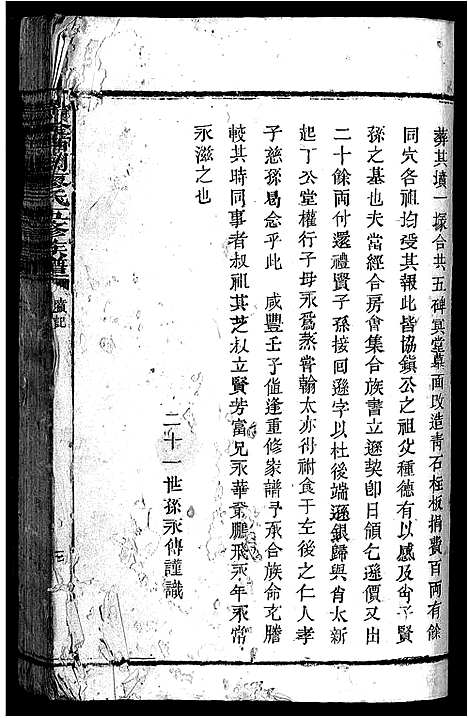 葬其墳一塚合共五碑冥堂草面改造青石柱板捐費百兩有餘
同穴各祖均受其報此皆協鎮公之祖父種德有以感及肖子賢
孫之基也夫當經合房會集合族書立遜契即日領乞遜價又出
二十餘兩付還禮賢子孫接回遜字以杜後端遜銀歸與肖太新
起丁公堂權行子母永爲蒸嘗翰太亦得祔食于左後之仁人孝
子慈孫曷念乎此 咸豐壬子值逢重修家譜予承合族命克謄
較其時同事者叔祖其芝叔立賢芳富兄永華章鵬飛永年永常
永滋之也
二十一世孫永傳謹識
氏五修族譜
墳記